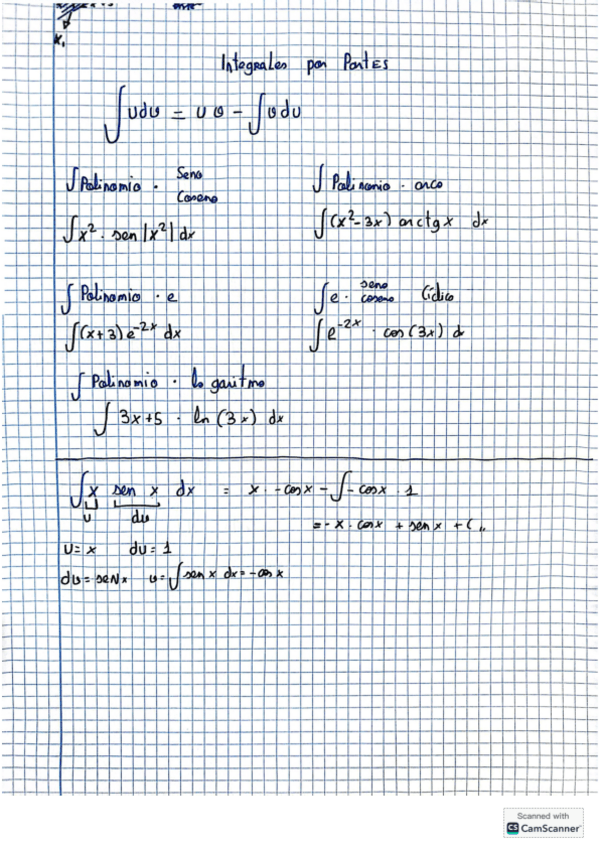 x₁
Integrales por Partes
∫udv = uv - ∫vdu
∫Polinomio · Seno Coseno
∫Polinomio · arco
∫x² · sen|x²|dx
∫(x²-3x) arctgx dx
∫Polinomio · e
∫e · seno coseno Cíclico
∫(x+3)e⁻²ˣ dx
∫e⁻²ˣ · cos(3x) d
∫Polinomio · logaritmo
∫3x+5 · ln(3x) dx
∫x sen x dx = x · -cosx - ∫-cosx 1
u dv
= -x · cosx + senx + C
u=x du=1
dv=senx v=∫senx dx=-cosx
Scanned with
CS CamScanner